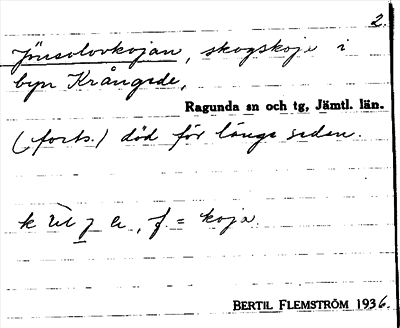 2.
Jönsolovkojan, skogskoja i
byn Krångede,
Ragunda sn och tg, Jämtl. län.
(forts.) död för länge sedan.
k
f = koja
BERTIL FLEMSTRÖM 1936.